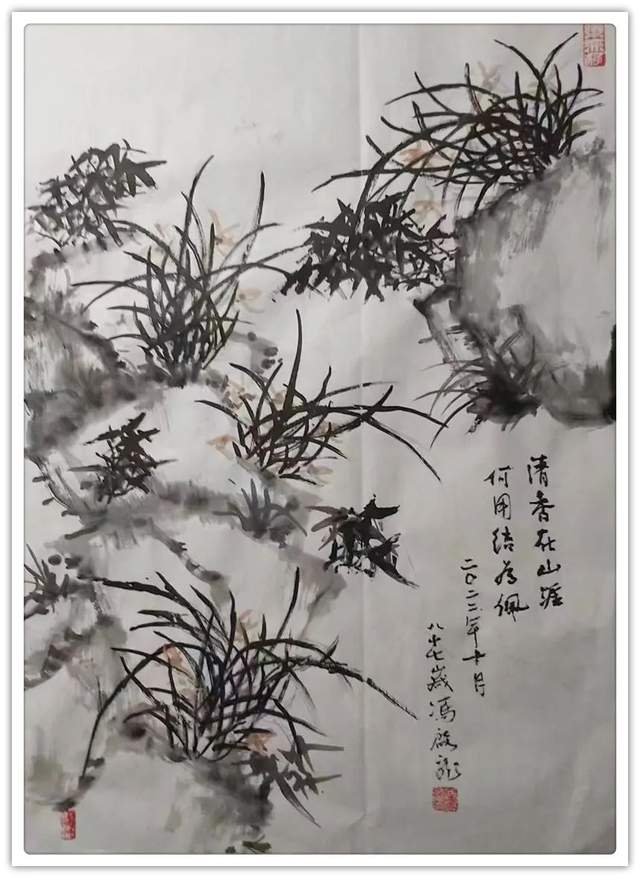 清香在山崖
何用结为佩
二〇二二年十月
八十七岁冯啟龙